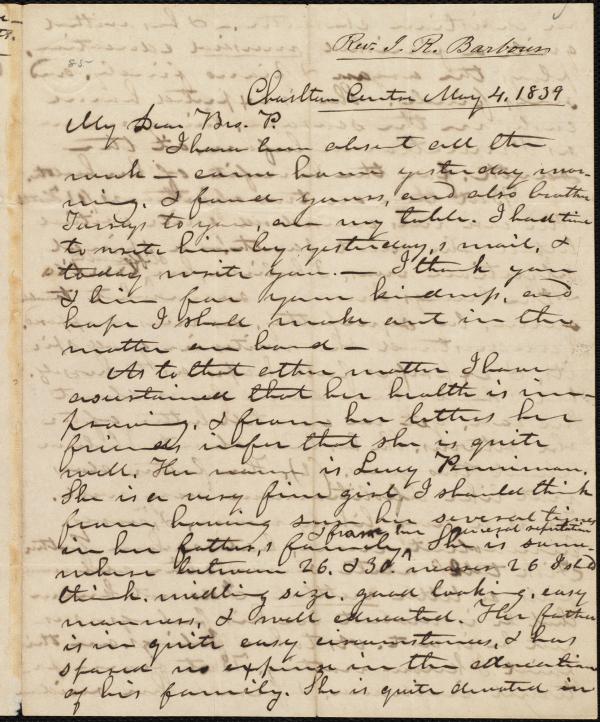 85
Rev. I. R. Barbour
Charlton Centre May 4. 1839
My Dear Bro. P.
I have been absent all the
week – came home yesterday mor-
ning. & found yours, and also brother
to you, on my table. I had time
to write him by yesterday,s mail, &
today write you. – I thank you
& him for your kindness, and
hope I shall make out in the
matter on hand –
As to that other matter I have
ascertained that her health is im-
proving, & from her letters her
friends infer that she is quite
well. Her name is Lucy Penniman.
She is a very fine girl I should think
from having seen her several times
in her father,s family & from her general reputation. She is some-
where between 26. & 30. nearer 26 I shd
think. medling size. good looking, easy
manners, & well educated. Her father
is in quite easy circumstances, & has
spared no expense in the education
of his family. She is quite devoted in